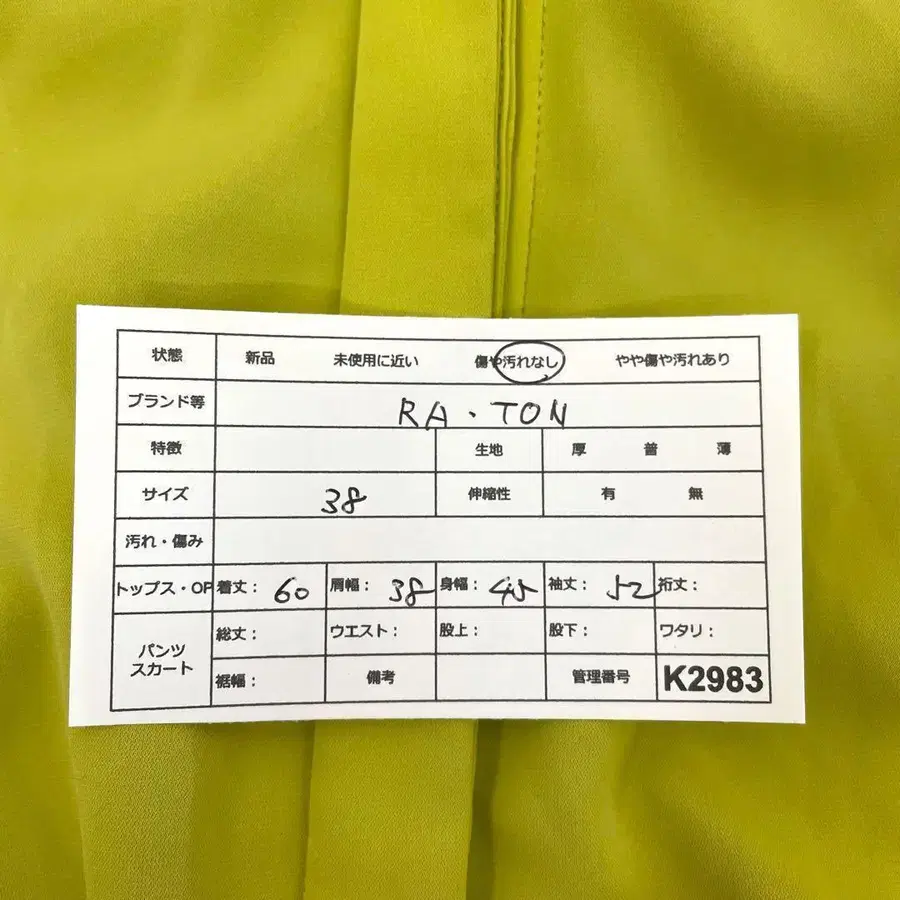 状態 新品 未使用に近い 傷や汚れなし やや傷や汚れあり
ブランド等 RA・TON
特徴 生地 厚 普 薄
サイズ 38 伸縮性 有 無
汚れ・傷み
トップス・OP 着丈: 60 肩幅: 38 身幅: 45 袖丈: 52 裄丈:
パンツ 総丈: ウエスト: 股上: 股下: ワタリ:
スカート 裾幅: 備考 管理番号 K2983